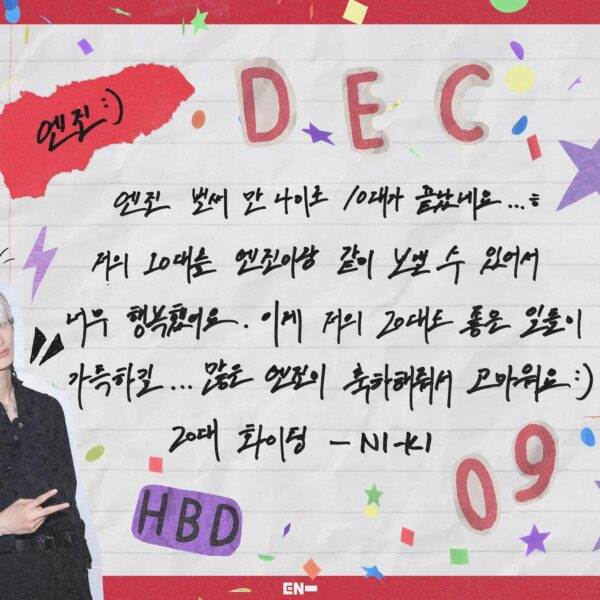 DEC
엔진:)
엔진 벌써 만 나이로 10대가 끝났네요...ㅎ
저의 10대를 엔진이랑 같이 보낼 수 있어서
너무 행복했어요. 이제 저의 20대도 좋은 일들이
가득하길... 많은 엔진이 축하해줘서 고마워요:)
20대 화이팅 - NI-KI
09
HBD
EN-